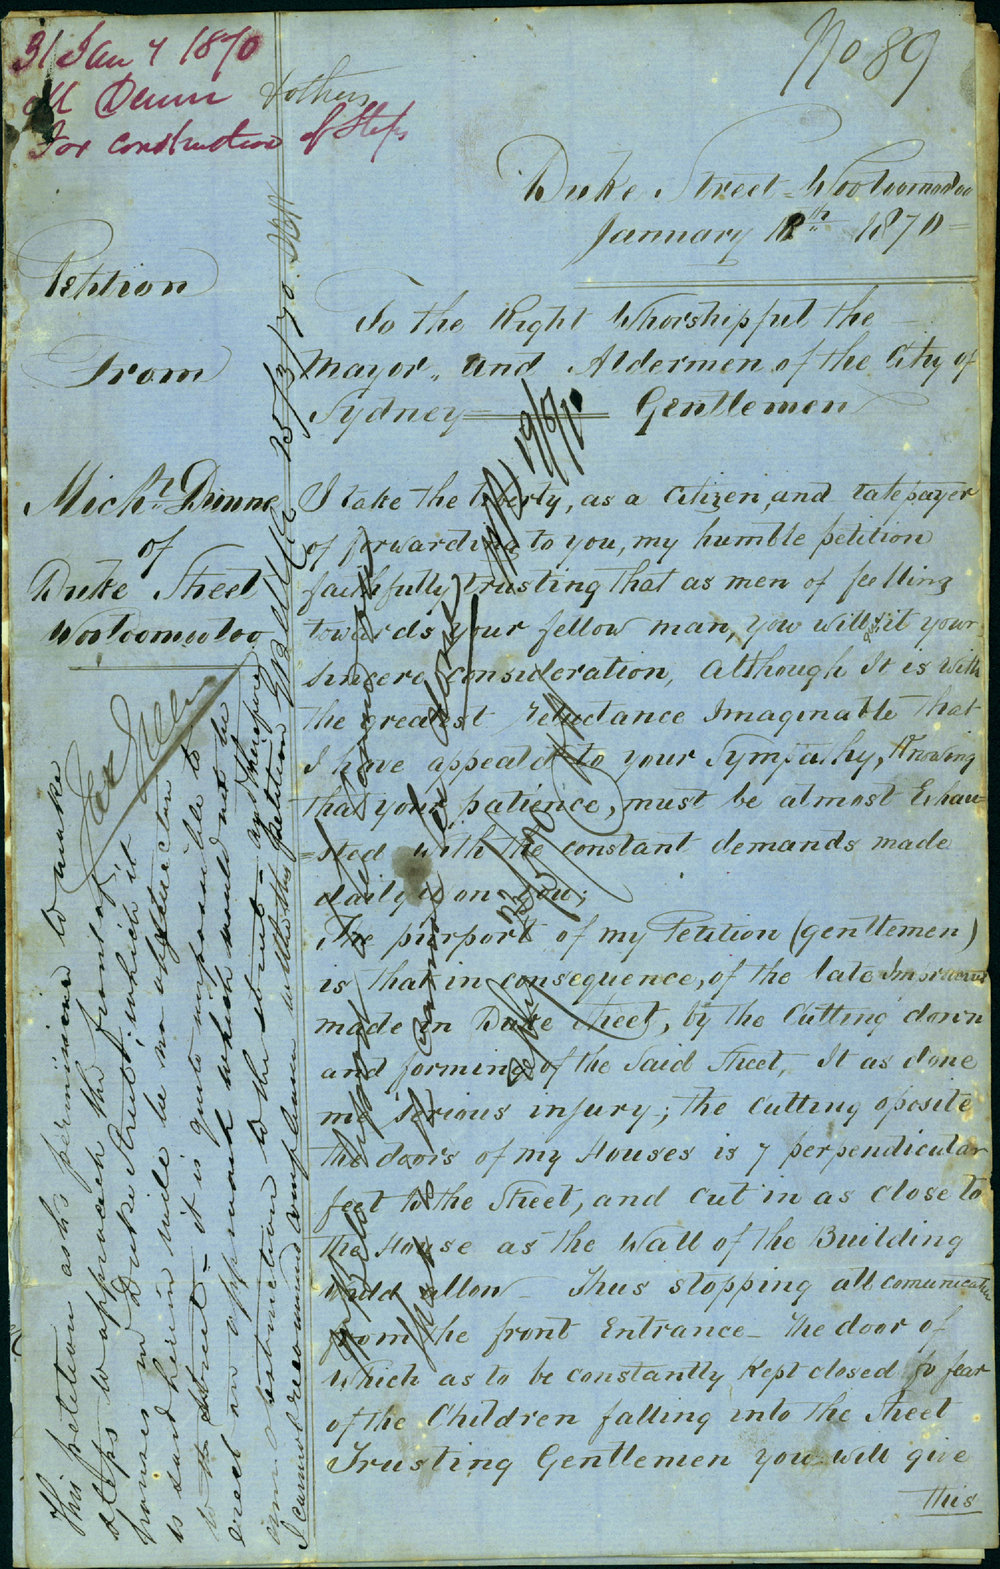 31 Jany 1870
M Dunn & others
For construction of Steps
No 89
Duke Street Wooloomooloo
January 18th 1870
Petition
From
Michl Dunne
of
Duke Street
Wooloomooloo
To the Right Whorshipful the
Mayor, and Aldermen of the City of
Sydney Gentlemen
I take the liberty, as a Citizen, and ratepayer
of forwarding to you, my humble petition
faithfully trusting that as men of feelling
towards your fellow man, you will give it your
sincere consideration, Although It is With
the greatest reluctance Imaginable that
I have appeald to your Sympathy, Knowing
that your patience, must be almost Exhau-
=sted with the constant demands made
daily upon you;
The purport of my Petition (gentlemen)
is that in consequence, of the late
made in Duke Street, by the Cutting down
and forming of the Said Street, It as done
me serious injury; the Cutting oposite
the doors of my Houses is 7 perpendicular
feet to the Street, and Cut in as Close to
the House as the Wall of the Building
Wdd allow - Thus stopping all comunication
from the front Entrance - The door of
Which as to be constantly Kept closed fo fear
of the Children falling into the Street
Trusting Gentlemen you will give
this
This petition asks permission to make
steps to approach the front of
houses in Duke Street, which it
is said herein will be no obstruction
to the street - it is quite impossible to
erect an approach which would not be
an obstruction to the street - and therefore
I cannot recommend compliance with this petition
25/3/70
19/6/70